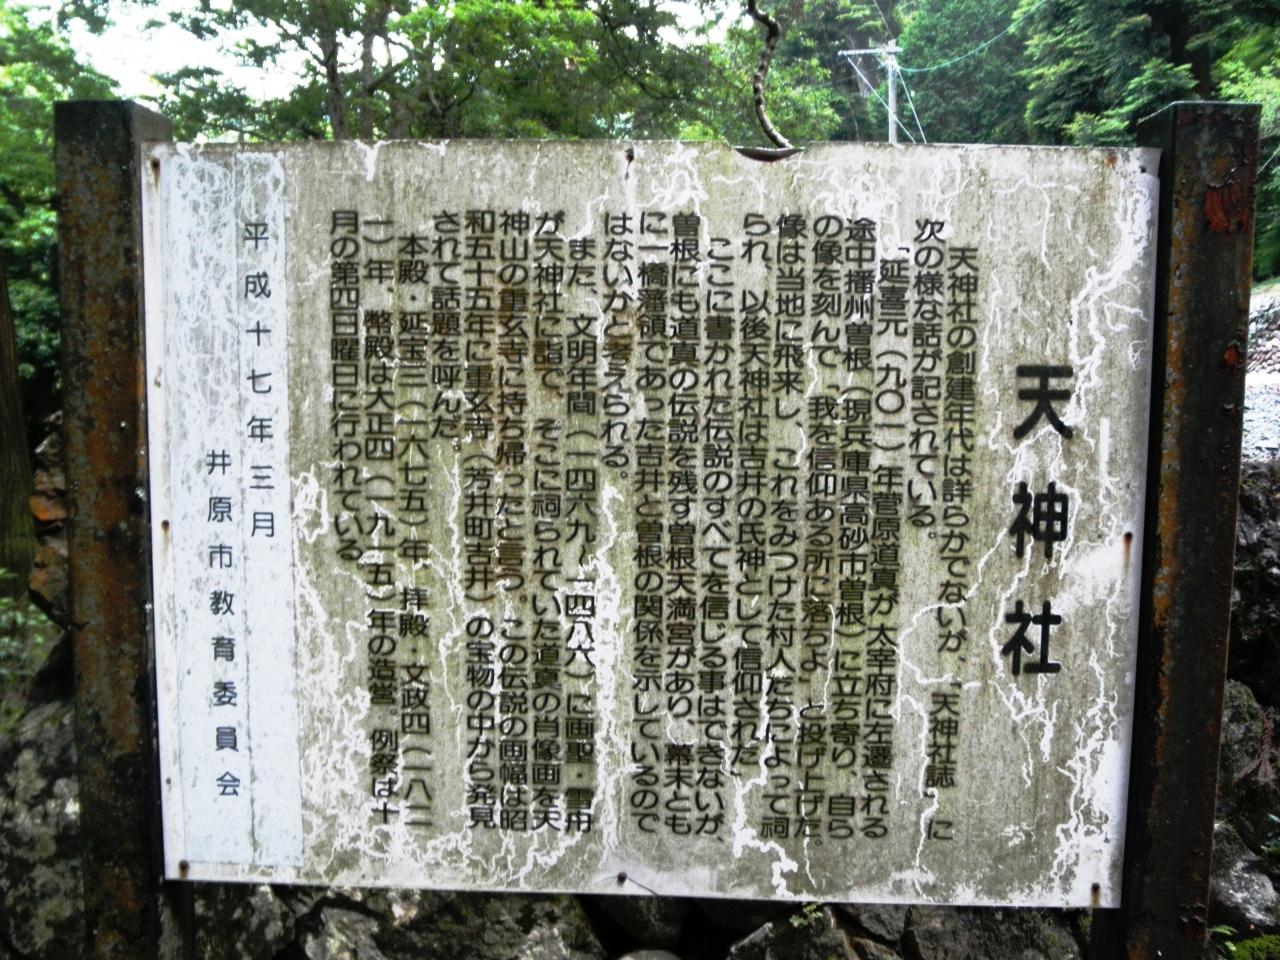 天神社
天神社の創建年代は詳らかでないが、「天神社誌」に
次の様な話が記されている。
「延喜元（九〇一）年菅原道真が太宰府に左遷される
途中播州曽根（現兵庫県高砂市曽根）に立ち寄り、自ら
の像を刻んで、「我を信仰ある所に落ちよ」と投げ上げた。
像は当地に飛来し、これをみつけた村人たちによって祠
られ、以後天神社は吉井の氏神として信仰された」
ここに書かれた伝説のすべてを信じる事はできないが、
曽根にも道真の伝説を残す曽根天満宮があり、幕末とも
に一橋藩領であった吉井と曽根の関係を示しているので
はないかと考えられる。
また、文明年間（一四六九〜一四八六）に画聖・雪舟
が天神社に詣で、そこに祠られていた道真の肖像画を天
神山の重玄寺に持ち帰ったと言う。この伝説の画幅は昭
和五十五年に重玄寺（芳井町吉井）の宝物の中から発見
されて話題を呼んだ。
本殿・延宝三（一六七五）年、拝殿・文政四（一八二
一）年、幣殿は大正四（一九一五）年の造営、例祭は十
月の第四日曜日に行われている。
平成十七年三月
井原市教育委員会